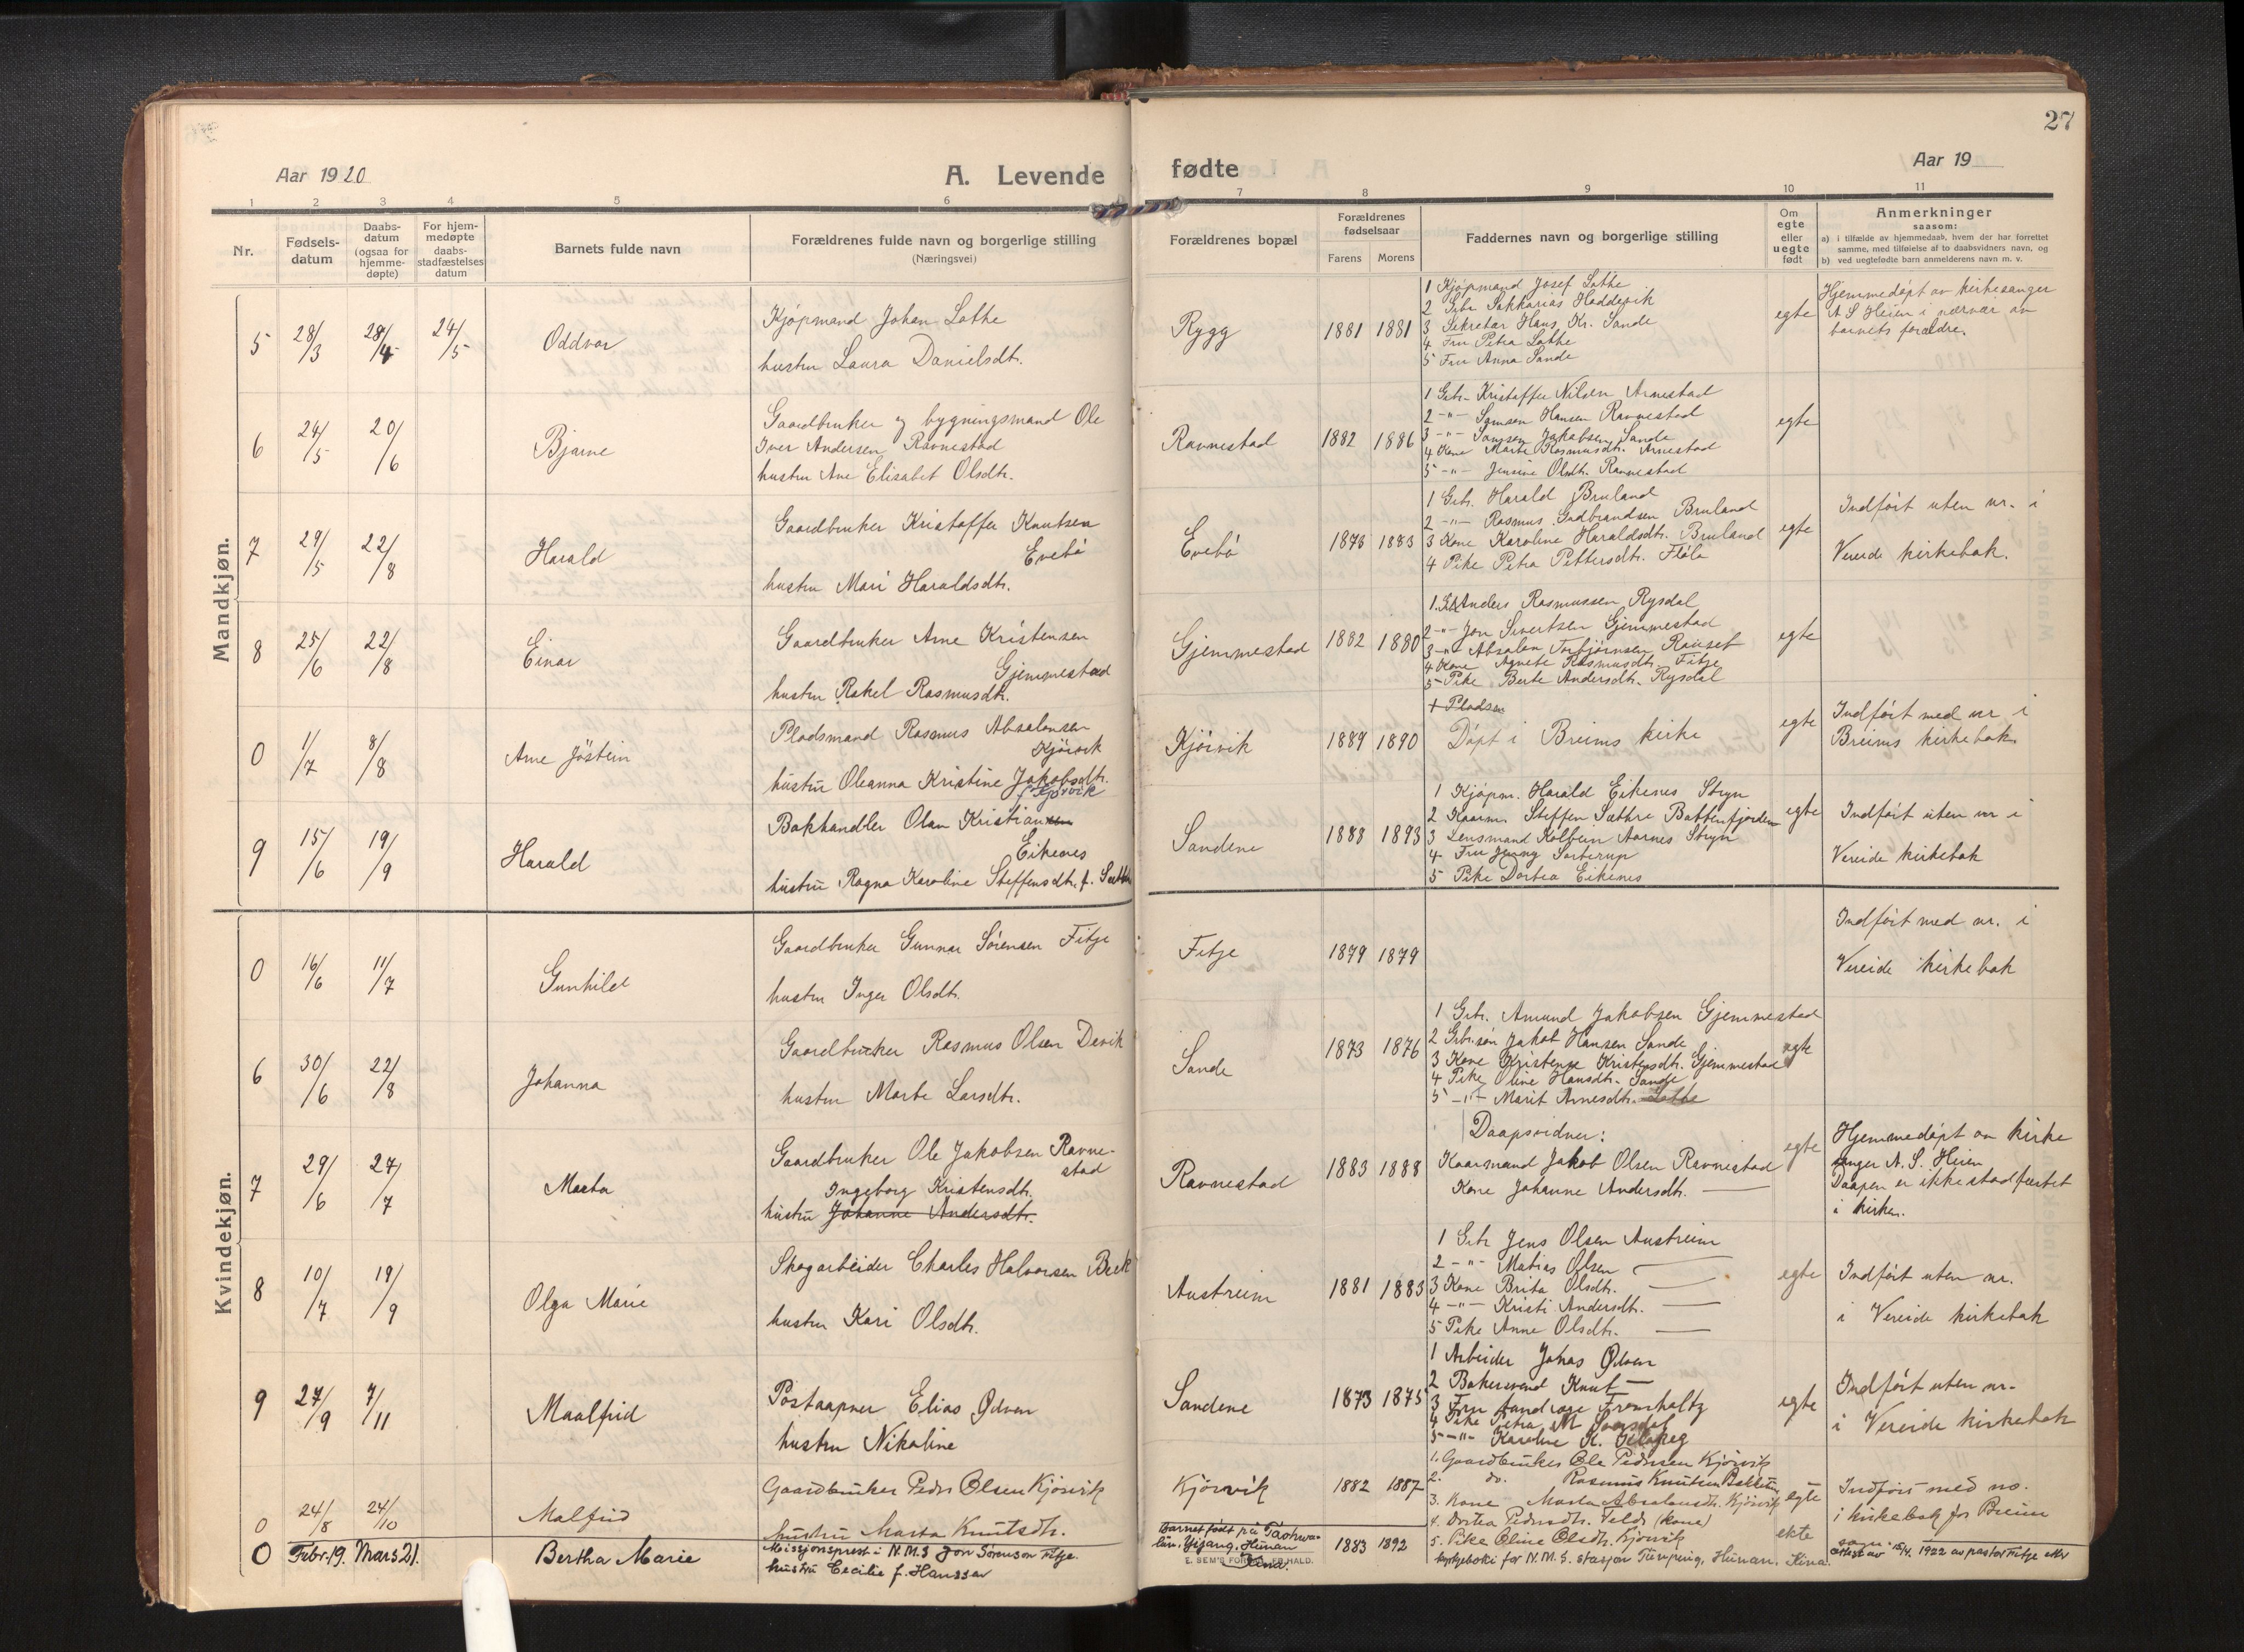 27
Aar 1920
A. Levende
fødte
Aar 19
1 2 3 4 5 6 7 8 9 10 11
Nr.
Fødselsdatum
Daabsdatum (ogsaa for hjemmedøpte)
For hjemmedøpte daabsstadfæstelses datum
Barnets fulde navn
Forældrenes fulde navn og borgerlige stilling
(Næringsvei)
Forældrenes bopæl
Forældrenes fødselsaar
Farens Morens
Faddernes navn og borgerlige stilling
Om egte eller uegte født
Anmerkninger
saasom:
a) i tilfælde av hjemmedaab, hvem der har forrettet
samme, med tilføielse af to daabsvidners navn, og
b) ved uegtefødte barn anmelderens navn m. v.
Mandkjøn.
5 28/3 28/4 24/5 Oddvar
Kjøpmand Johan Lothe
hustru Laura Danielsdtr.
Rygg 1881 1881
1 Kjøpmand Josef Lothe
2 Sakkarias Haddevik
3 Sekretær Hans Kr. Sande
4 Fru Petra Lothe
5 Fru Anna Sande
egte
Hjemmedøpt av kirkesanger
A S Heien i nærvær av
barnets forældre.
6 24/5 20/6 Bjarne
Gaardbruker og bygningsmand Ole
Iver Andersen Ravnestad
hustru Ane Elisabet Olsdtr.
Ravnestad 1882 1886
1 Grbr. Kristoffer Nilsen Arnestad
2 -"- Samson Hansen Ravnestad
3 -"- Samson Jakobsen Sande
4 Kone Marte Rasmusdtr. Arnestad
5 -"- Jensine Olsdtr. Ravnestad
egte
7 29/5 22/8 Harald
Gaardbruker Kristoffer Knutsen
Evebø
hustru Mari Haraldsdtr.
Evebø 1873 1883
1 Grbr. Harald Bruland
2 -"- Rasmus Gudbrandsen Bruland
3 Kone Karoline Haraldsdtr. Bruland
4 Pike Petra Pettersdtr. Fløle
egte
Indført uten nr. i
Vereide kirkebok.
8 25/6 22/8 Einar
Gaardbruker Arne Kristensen
Gjemmestad
hustru Rakel Rasmusdtr.
Gjemmestad 1882 1880
1. Anders Rasmussen Rysdal
2 -"- Jon Sivertsen Gjemmestad
3 -"- Absalon Torbjørnsen Rauset
4 Kone Agnete Rasmusdtr. Fitje
5 Pike Berte Andersdtr. Rysdal
egte
0 1/7 8/8 Arne Jøstein
Pladsmand Rasmus Absalonsen
Kjørvik
hustru Oleanna Kristine Jakobsdtr.
f. Kjørvik
Kjørvik 1889 1890
1 Pladsm
Døpt i Breims kirke
egte
Indført med nr i
Breims kirkebok.
9 15/6 19/9 Harald
Bokhandler Olav Kristiansen
Eikenes
hustru Ragna Karoline Steffensdtr. f. Sæthre
Sandene 1888 1893
1 Kjøpm. Harald Eikenes Stryn
2 Kaarm. Steffen Sæthre Battenfjorden
3 Lensmand Kolbein Aarnes Stryn
4 Fru Jenny Sorterup
5 Pike Dortea Eikenes
egte
Indført uten nr i
Vereide kirkebok
Kvindekjøn.
0 16/6 11/7 Gunhild
Gaardbruker Gunnar Sørensen Fitje
hustru Inger Olsdtr.
Fitje 1879 1879
Indført med nr. i
Vereide kirkebok
6 30/6 22/8 Johanna
Gaardbruker Rasmus Olsen Devik
hustru Marte Larsdtr.
Sande 1873 1876
1 Grbr. Amund Jakobsen Gjemmestad
2 Grbr.søn Jakob Hansen Sande
3 Kone Kristense Kristensdtr. Gjemmestad
4 Pike Oline Hansdtr. Sande
5 -"- Marit Arnesdtr. Lothe
egte
7 29/6 27/7 Marta
Gaardbruker Ole Jakobsen Ravnestad
Ingeborg Kristensdtr.
hustru Johanne Andersdtr.
Ravnestad 1883 1888
Daapsvidner:
Kaarmand Jakob Olsen Ravnestad
Kone Johanne Andersdtr. —
egte
Hjemmedøpt av kirke
sanger A. S. Heien
Daapen er ikke stadfæstet
i kirken.
8 10/7 19/9 Olga Marie
Skogarbeider Charles Halvorsen Beck
hustru Kari Olsdtr.
Austreim 1881 1883
1 Grbr Jens Olsen Austreim
2 -"- Matias Olsen —
3 Kone Brita Olsdtr. —
4 -"- Kristi Andersdtr. —
5 Pike Anne Olsdtr. —
egte
Indført uten nr.
i Vereide kirkebok
9 27/9 7/11 Maalfrid
Postaapner Elias Ødven
hustru Nikoline
Sandene 1873 1875
1 Arbeider Johas Ødven
2 Bakersvend Knut —
3 Fru Fromholtz
4 Pike Petra M
5 -"- Karoline K.
egte
Indført uten nr.
i Vereide kirkebok
0 24/8 24/10 Malfrid
Gaardbruker Peder Olsen Kjørvik
hustru Marta Knutsdtr.
Kjørvik 1882 1887
1. Gaardbruker Ole Pedersen Kjørvik
2. do. Rasmus Knutsen
3. Kone Marta Absalonsdtr. Kjørvik
4. Dortea Pedersdtr. Felde (kone)
5. Pike Oline Olsdtr. Kjørvik
egte
Indført med no.
i kirkebok for Breim
0 Febr. 19. Mars 21. Bertha Marie
Missjonsprest i N.M.S Jon Sørenson Fitje.
hustru Cecilie f. Hanssen
Barnet født på Taohwalun, Yiyang, Hunan
Kina.
E. SEM'S FORLAG, FR.HALD.
1883 1892
kyrkjeboki for N.M.S. stasjon Hunan, Kina.
ekte
attest av 15/4. 1922 av pastor Fitje